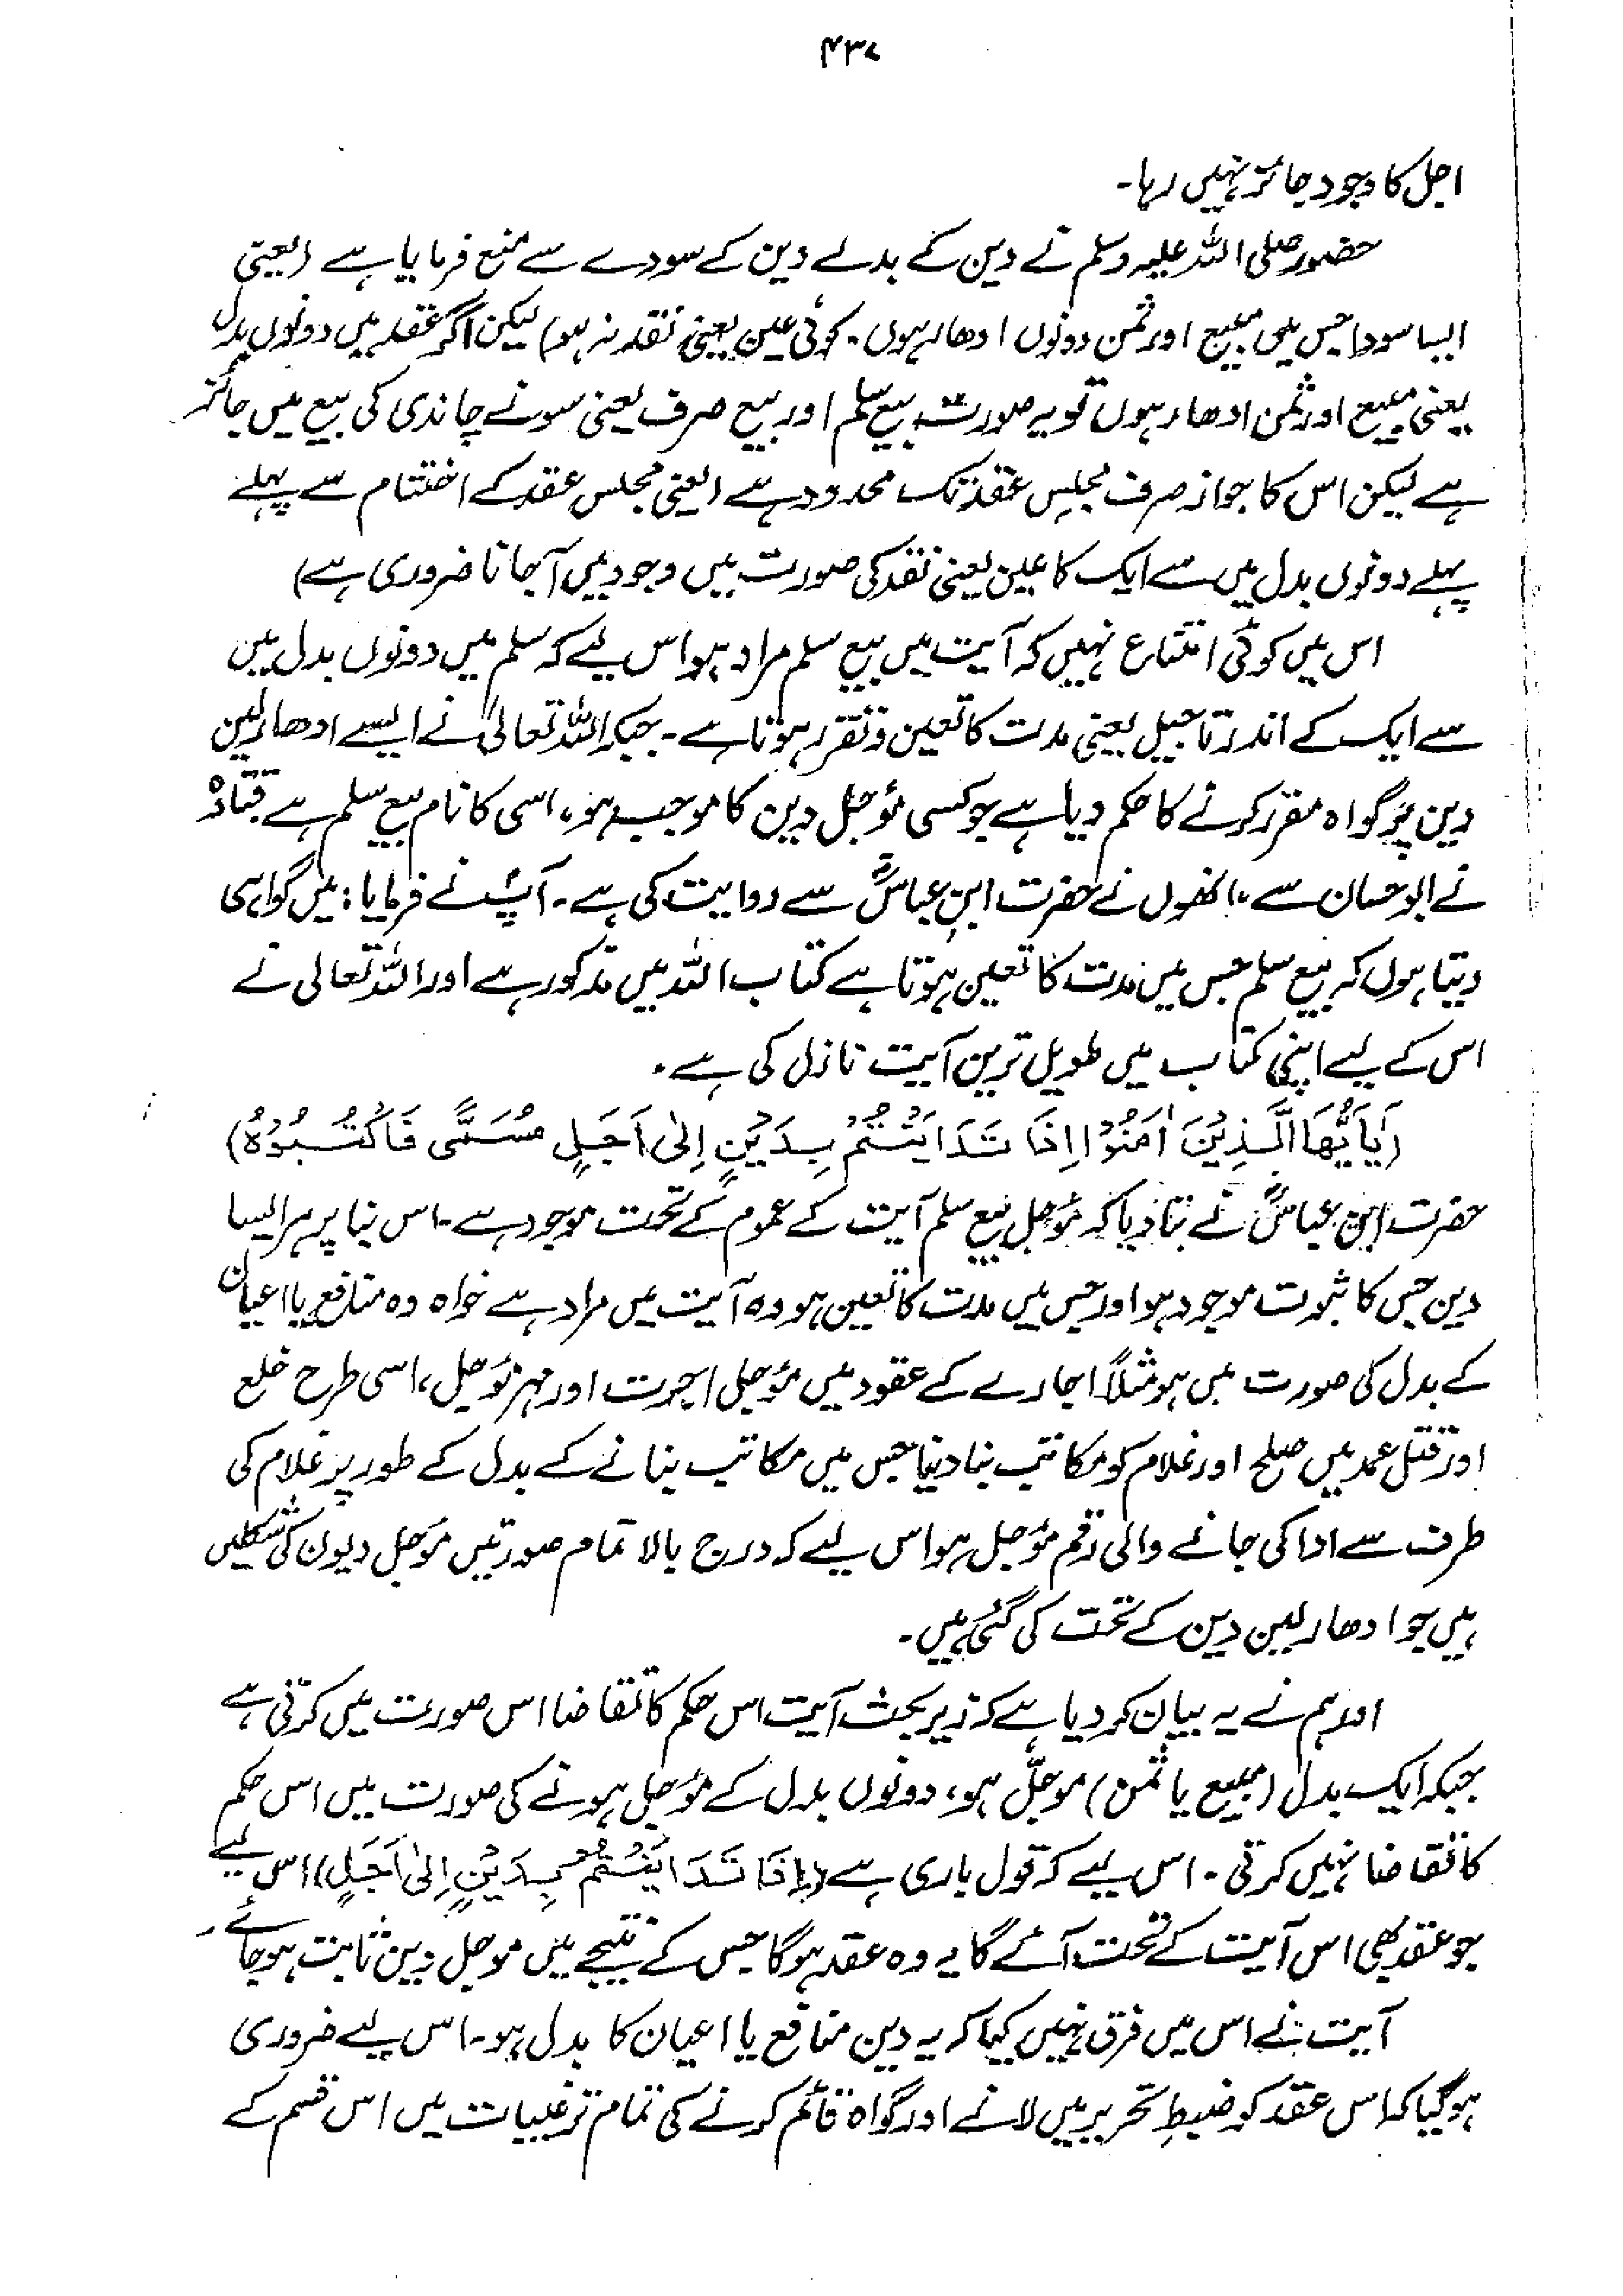 ۴۳۷
اجل کا وجود جائز نہیں رہا۔
حضور صلی اللہ علیہ وسلم نے دین کے بدلے دین کے سودے سے منع فرمایا ہے (یعنی
ایسا سودا جس میں مبیع اور ثمن دونوں ادھار ہوں۔ کوئی عین یعنی نقد نہ ہو) لیکن اگر عقد میں دونوں بدل
یعنی مبیع اور ثمن ادھار ہوں تو یہ صورت بیع سلم اور بیع صرف یعنی سونے چاندی کی بیع میں جائز
ہے لیکن اس کا جواز صرف مجلسِ عقد تک محدود ہے (یعنی مجلس عقد کے اختتام سے پہلے
پہلے دونوں بدل میں سے ایک کا عین یعنی نقد کی صورت میں وجود میں آجانا ضروری ہے)
اس میں کوئی امتناع نہیں کہ آیت میں بیع سلم مراد ہو اس لیے کہ سلم میں دونوں بدل میں
سے ایک کے اندر تاجیل یعنی مدت کا تعین و تقرر ہوتا ہے۔ جبکہ اللہ تعالیٰ نے ایسے ادھار لین
دین پر گواہ مقرر کرنے کا حکم دیا ہے جو کسی مؤجل دین کا موجب ہو، اسی کا نام بیع سلم ہے قتادہ
نے ابو حسان سے، انھوں نے حضرت ابنِ عباسؓ سے روایت کی ہے۔ آپؓ نے فرمایا: میں گواہی
دیتا ہوں کہ بیع سلم جس میں مدت کا تعین ہوتا ہے کتاب اللہ میں مذکور ہے اور اللہ تعالیٰ نے
اس کے لیے اپنی کتاب میں طویل ترین آیت نازل کی ہے۔
(یٰٓاَیُّھَا الَّذِیْنَ اٰمَنُوْا اِذَا تَدَایَنْتُمْ بِدَیْنٍ اِلٰی اَجَلٍ مُسَمًّی فَاکْتُبُوْہُ)
حضرت ابن عباسؓ نے بتا دیا کہ مؤجل بیع سلم آیت کے عموم کے تحت موجود ہے۔ اس بنا پر ہر ایسا
دین جس کا ثبوت موجود ہو اور جس میں مدت کا تعین ہو وہ آیت میں مراد ہے خواہ وہ منافع یا اعیان
کے بدل کی صورت میں ہو مثلاً اجارے کے عقود میں مؤجل اجرت اور مہر مؤجل، اسی طرح خلع
اور قتل عمد میں صلح اور غلام کو مکاتب بنا دینا جس میں مکاتب بنانے کے بدل کے طور پر غلام کی
طرف سے ادا کی جانے والی رقم مؤجل ہو اس لیے کہ درج بالا تمام صورتیں مؤجل دیون کی شکلیں
ہیں جو ادھار لین دین کے تحت کی گئی ہیں۔
اور ہم نے یہ بیان کر دیا ہے کہ زیر بحث آیت اس حکم کا تقاضا اس صورت میں کرتی ہے
جبکہ ایک بدل (مبیع یا ثمن) موجلّ ہو، دونوں بدل کے مؤجل ہونے کی صورت میں اس حکم
کا تقاضا نہیں کرتی۔ اس لیے کہ قول باری ہے (اِذَا تَدَایَنْتُمْ بِدَیْنٍ اِلٰی اَجَلٍ) اس لیے
جو عقد بھی اس آیت کے تحت آئے گا یہ وہ عقد ہو گا جس کے نتیجے میں موجل دین ثابت ہو جائے۔
آیت نے اس میں فرق نہیں کیا کہ یہ دین منافع یا اعیان کا بدل ہو۔ اس لیے ضروری
ہو گیا کہ اس عقد کو ضبطِ تحریر میں لانے اور گواہ قائم کرنے کی تمام ترغیبات میں اس قسم کے